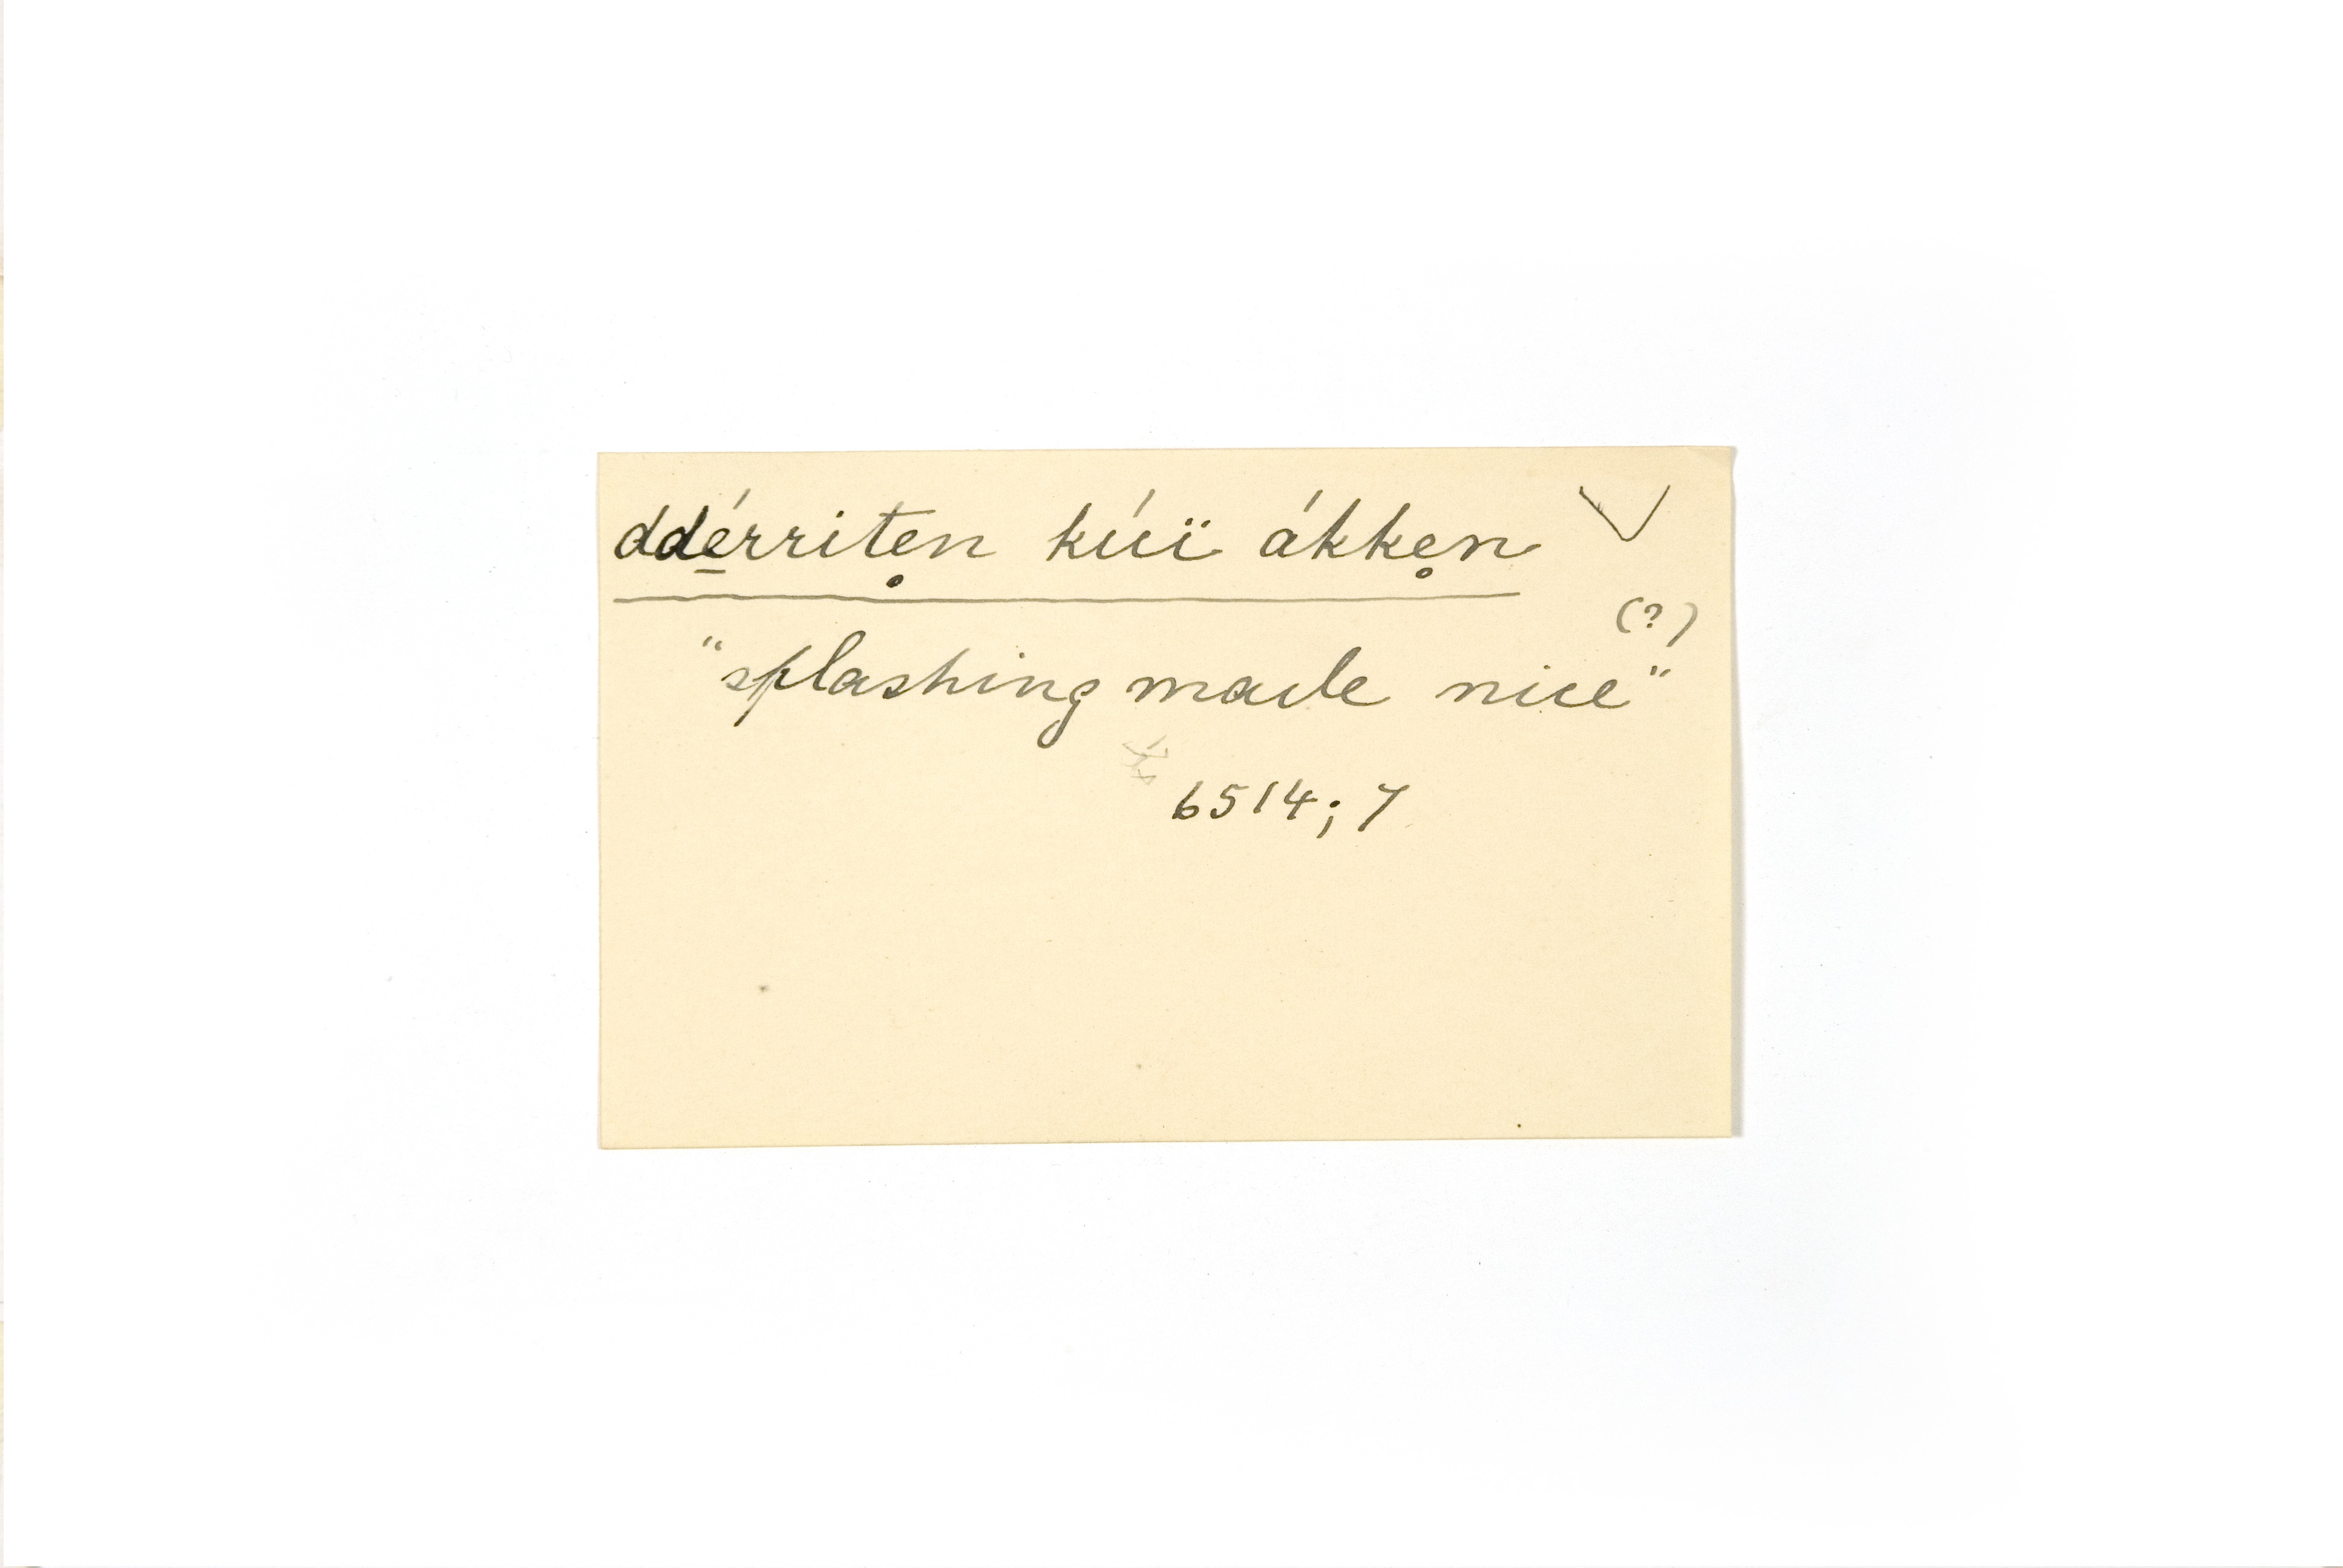 ddé̱rritẹn kúï ákkẹn
(?)
"splashing made nice"
6514; 7